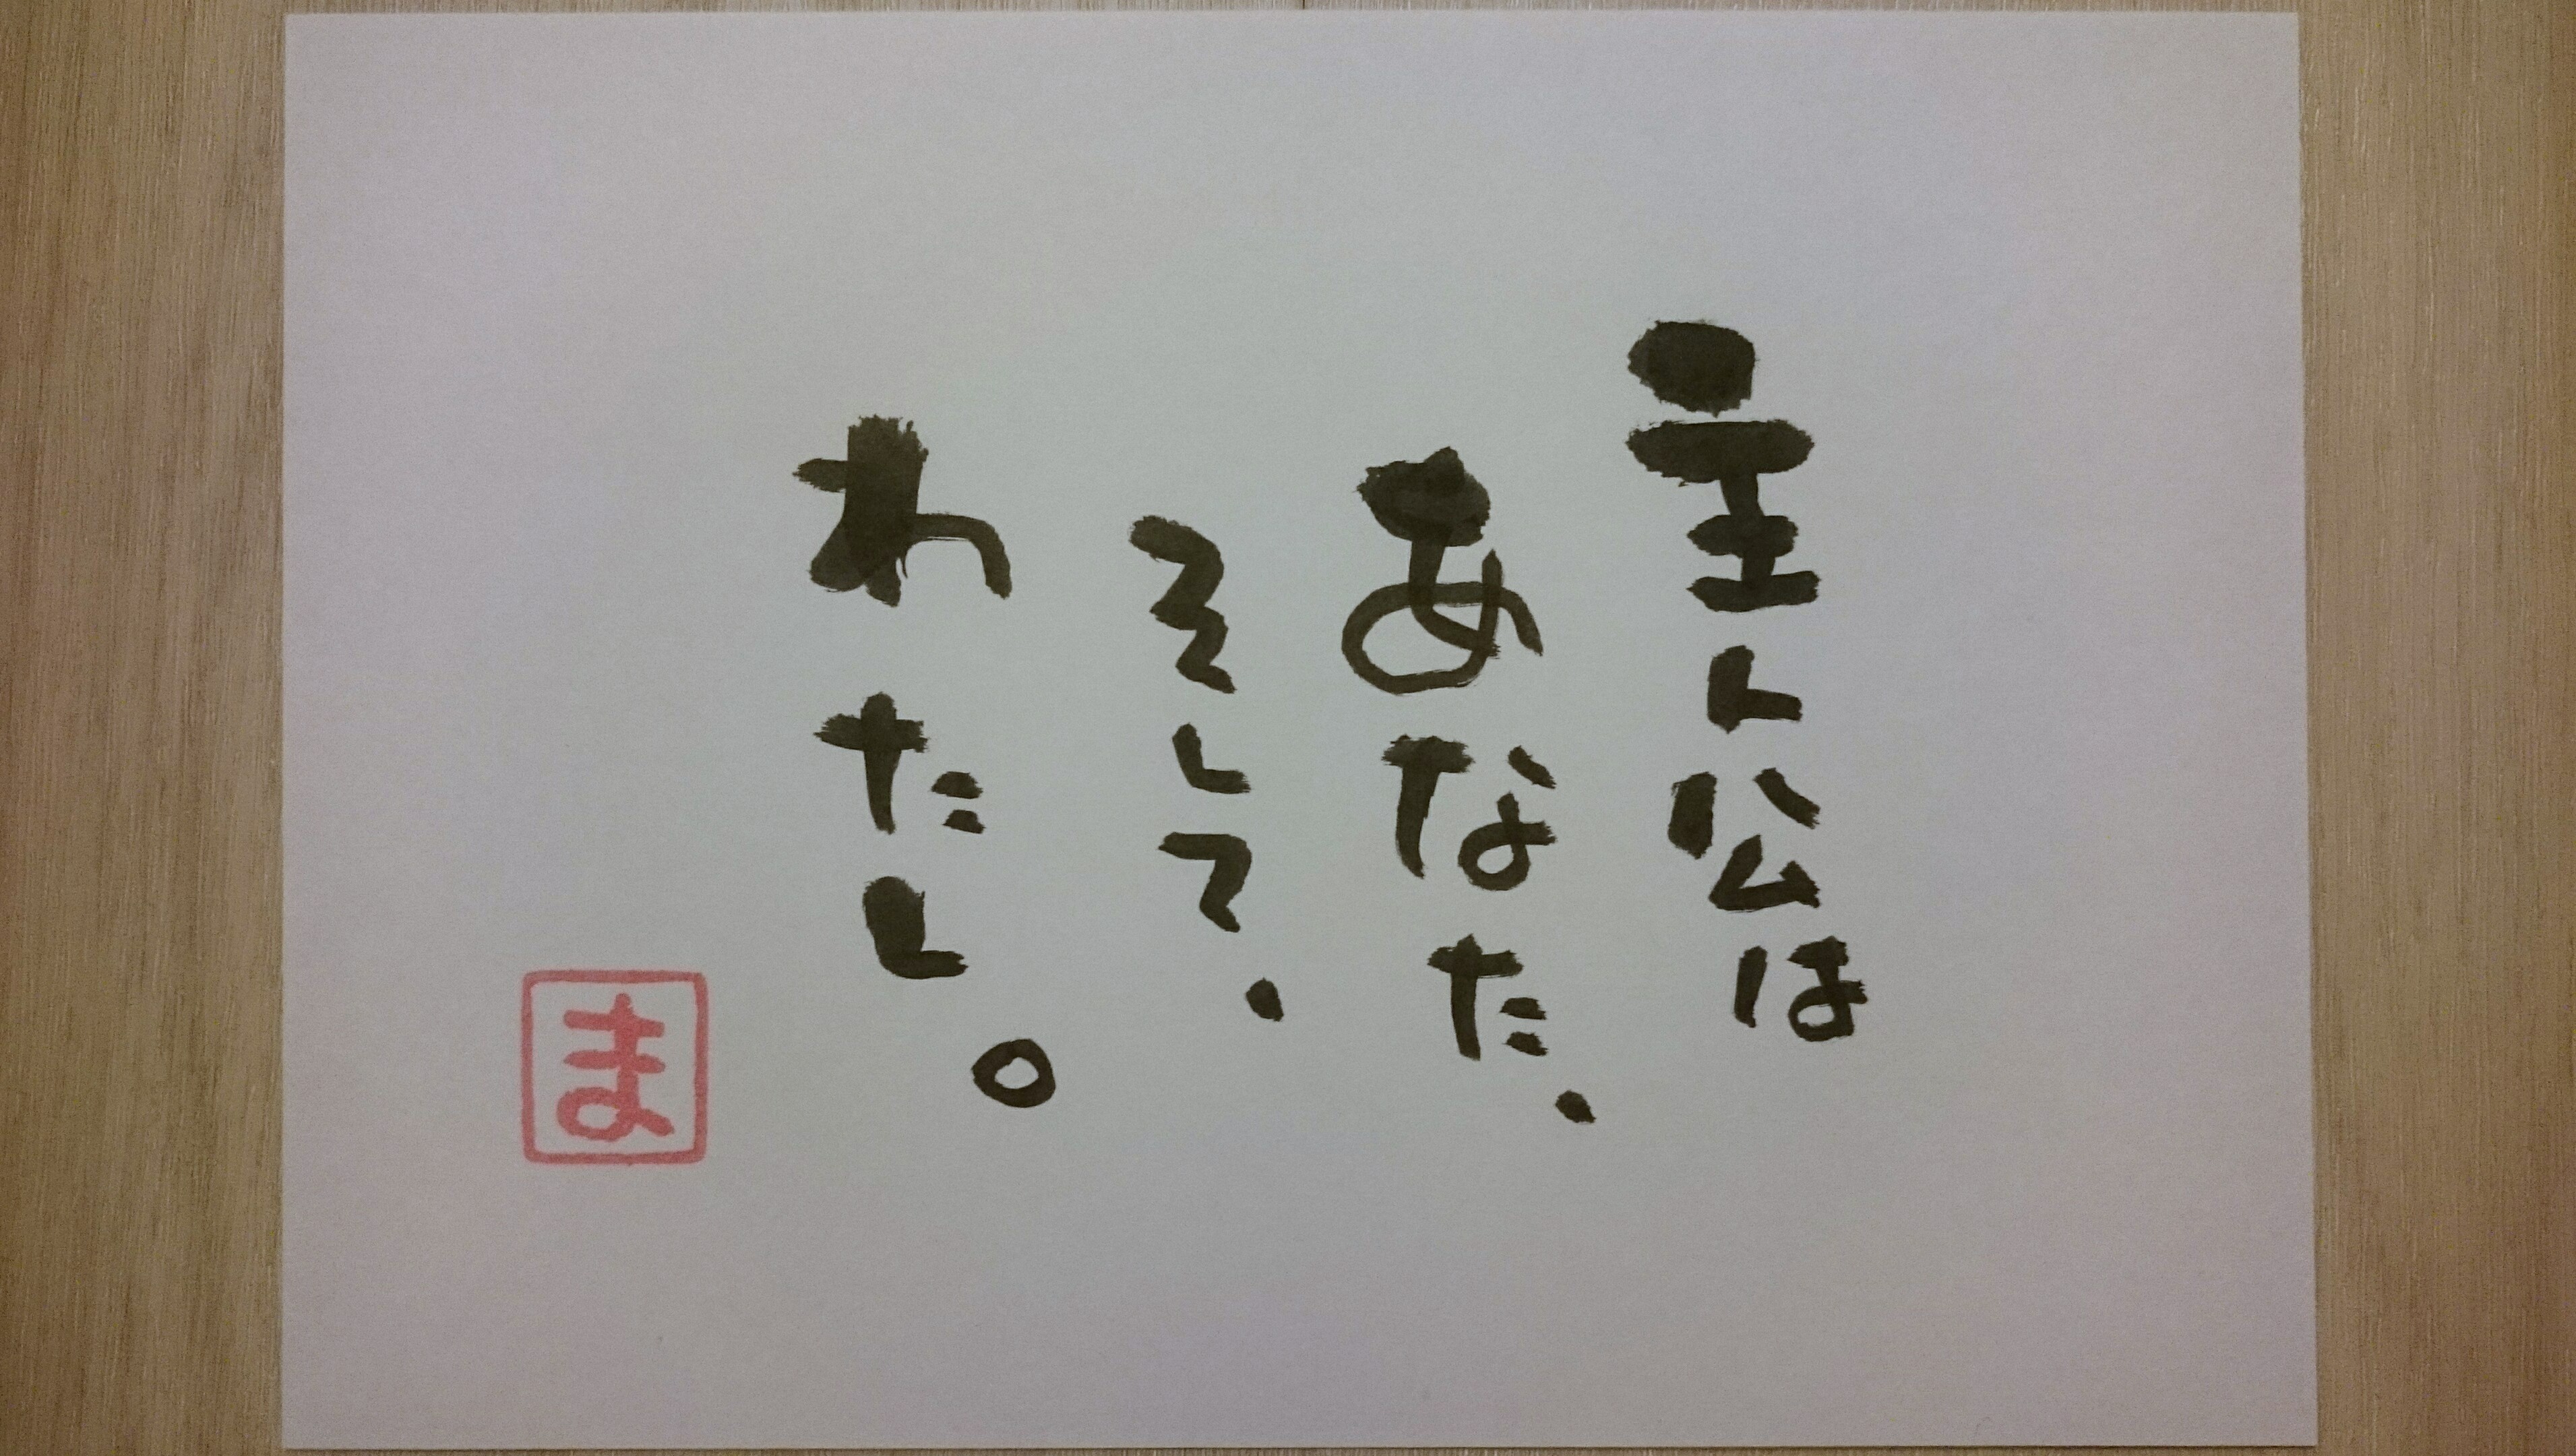 主人公は
あなた、
そして、
わたし。
ま